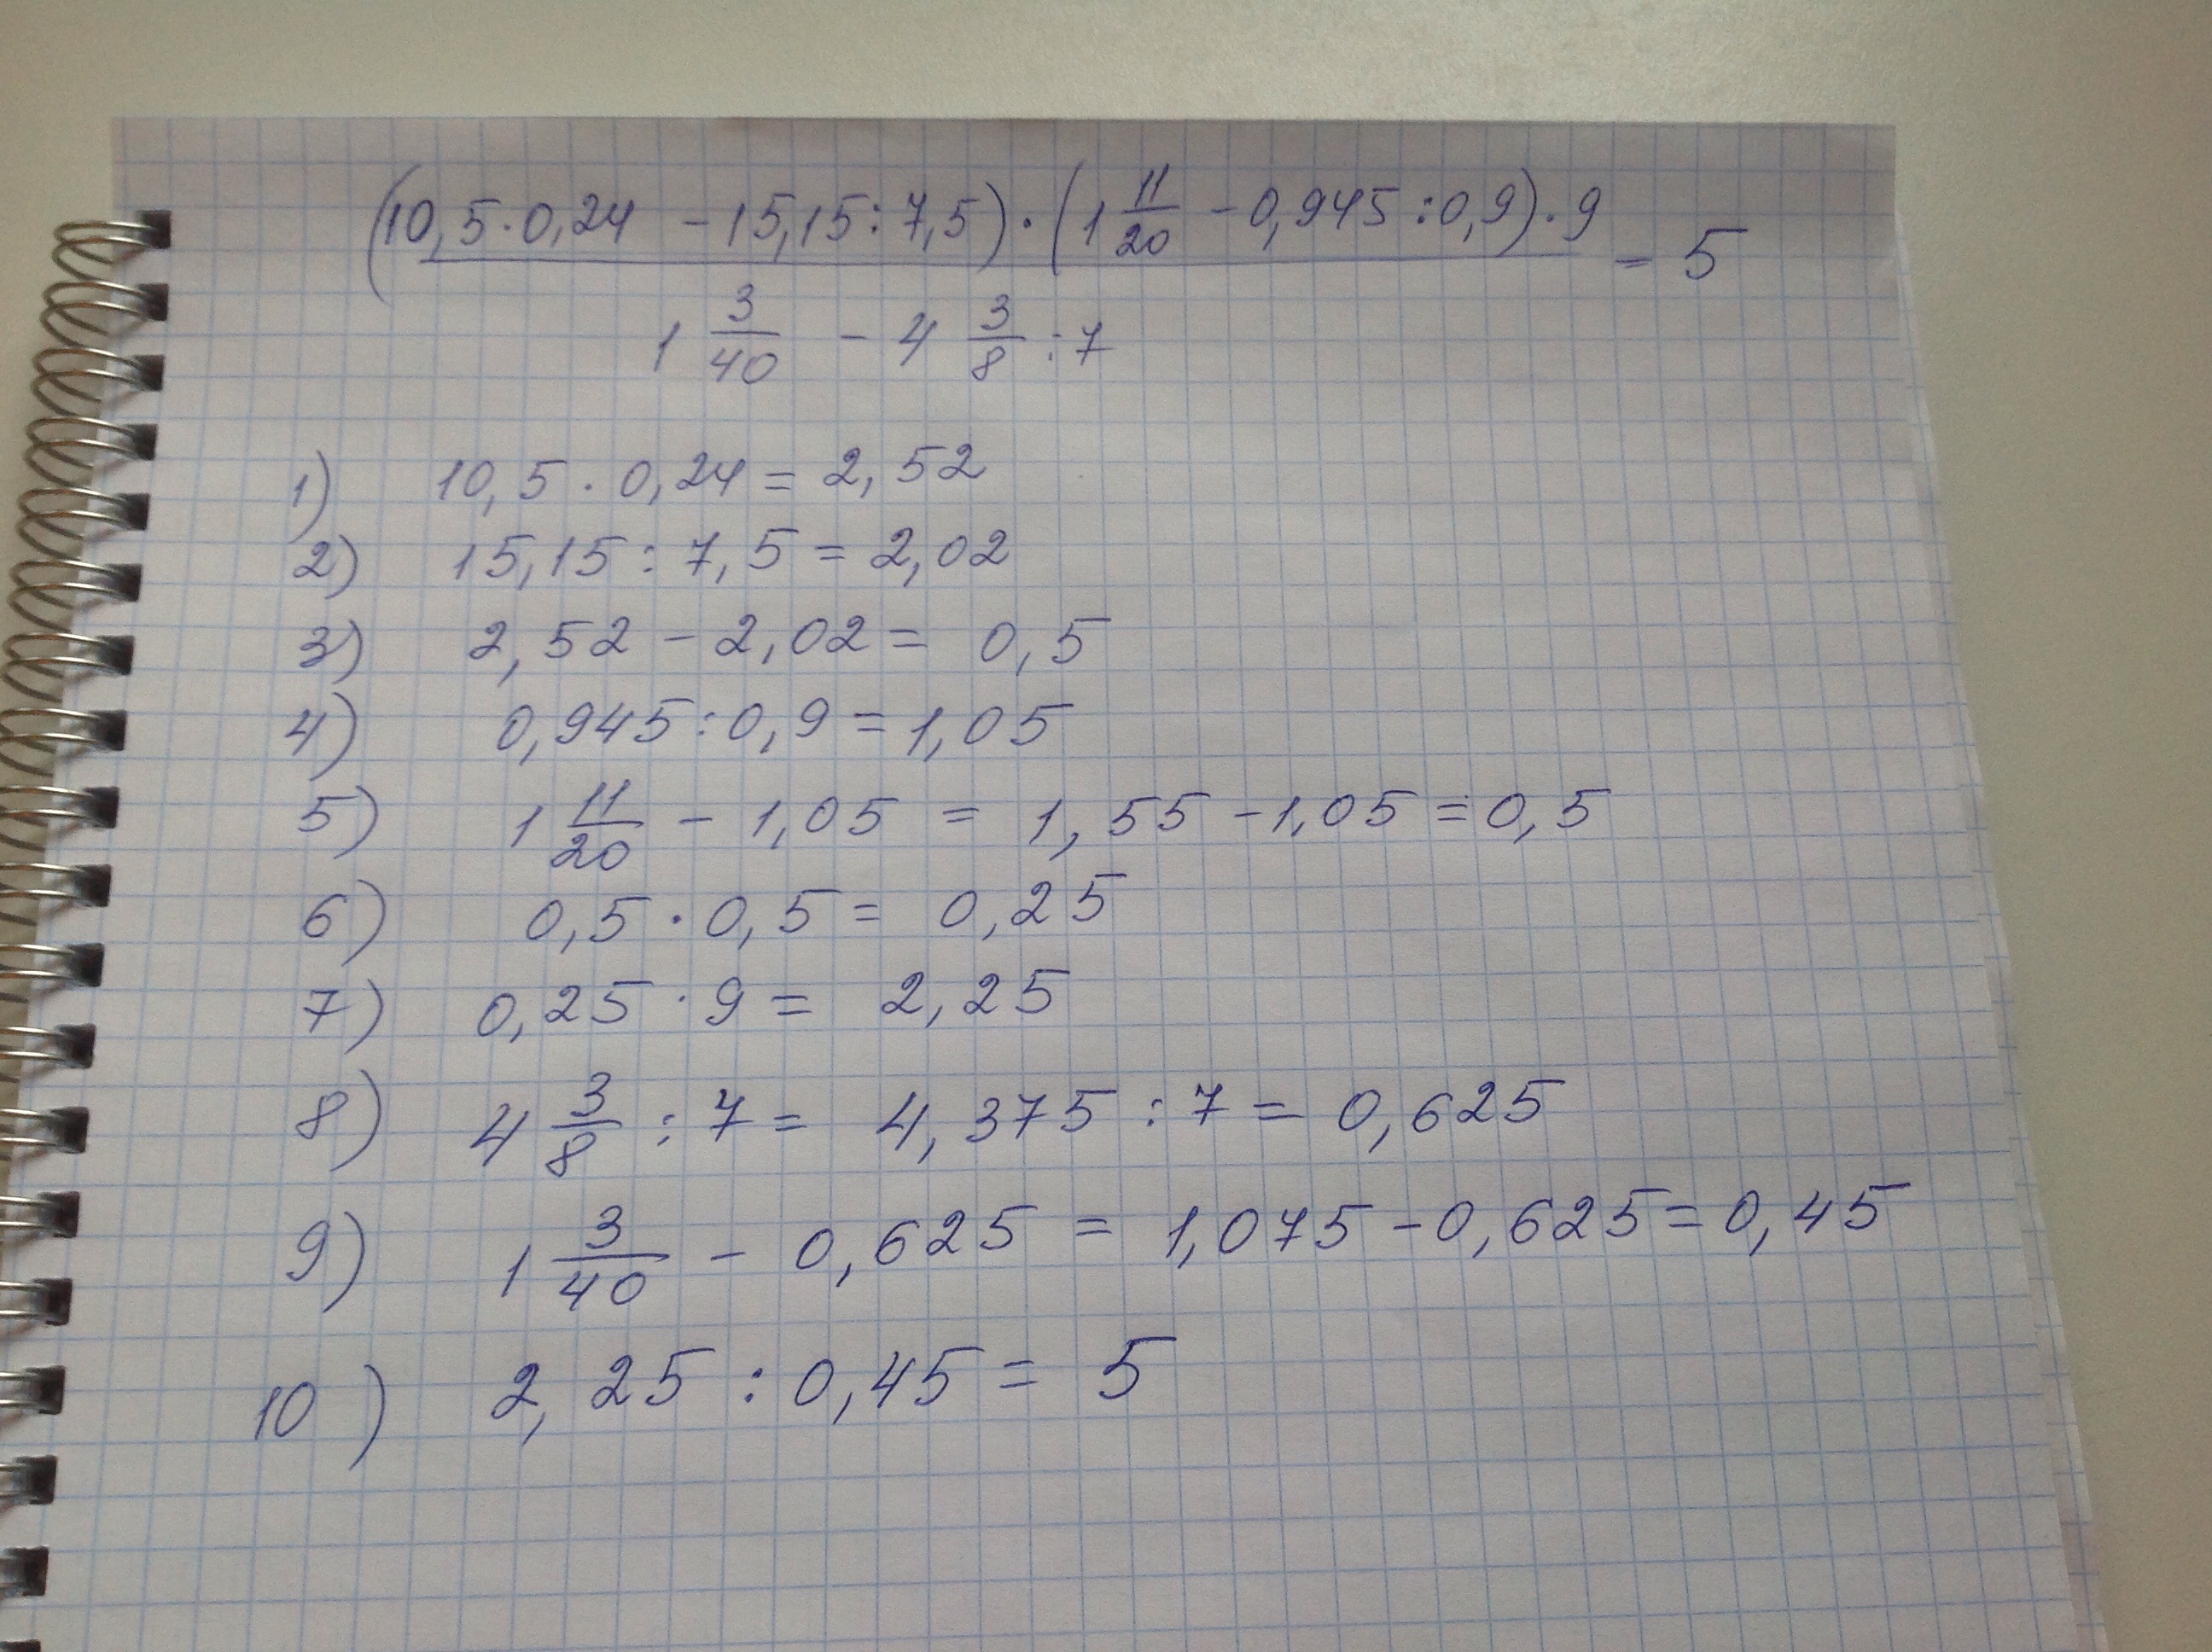 (10,5 · 0,24 - 15,15 : 7,5) · (1 11/20 - 0,945 : 0,9) · 9 = 5
1 3/40 - 4 3/8 : 7
1) 10,5 · 0,24 = 2,52
2) 15,15 : 7,5 = 2,02
3) 2,52 - 2,02 = 0,5
4) 0,945 : 0,9 = 1,05
5) 1 11/20 - 1,05 = 1,55 - 1,05 = 0,5
6) 0,5 · 0,5 = 0,25
7) 0,25 · 9 = 2,25
8) 4 3/8 : 7 = 4,375 : 7 = 0,625
9) 1 3/40 - 0,625 = 1,075 - 0,625 = 0,45
10) 2,25 : 0,45 = 5